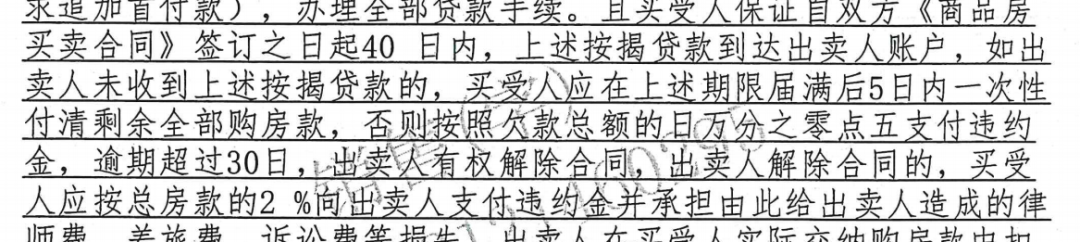 求追加首付款），办理全部贷款手续。且买受人保证自双方《商品房
买卖合同》签订之日起40 日内，上述按揭贷款到达出卖人账户，如出
卖人未收到上述按揭贷款的，买受人应在上述期限届满后5日内一次性
付清剩余全部购房款，否则按照欠款总额的日万分之零点五支付违约
金，逾期超过30日，出卖人有权解除合同，出卖人解除合同的，买受
人应按总房款的2 %向出卖人支付违约金并承担由此给出卖人造成的律
师费、差旅费、诉讼费等损失，出卖人在买受人实际交纳购房款中扣